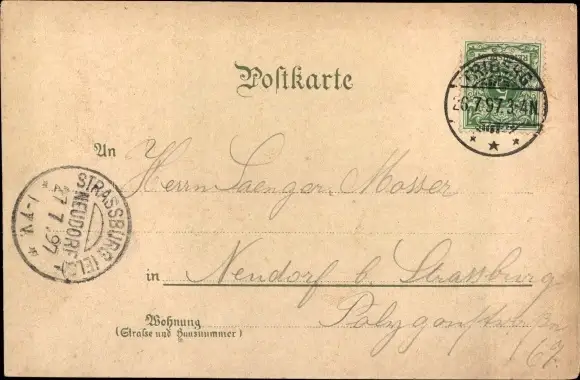 Postkarte
TRIBERG
26.7.97.3-4N.
An
Herrn Saenger Mosser
STRASSBURG (ELS.)
NEUDORF
27.7.97
1-7V.
in Neudorf b. Strassburg
Polygonstraße
67.
Wohnung
(Straße und Hausnummer)